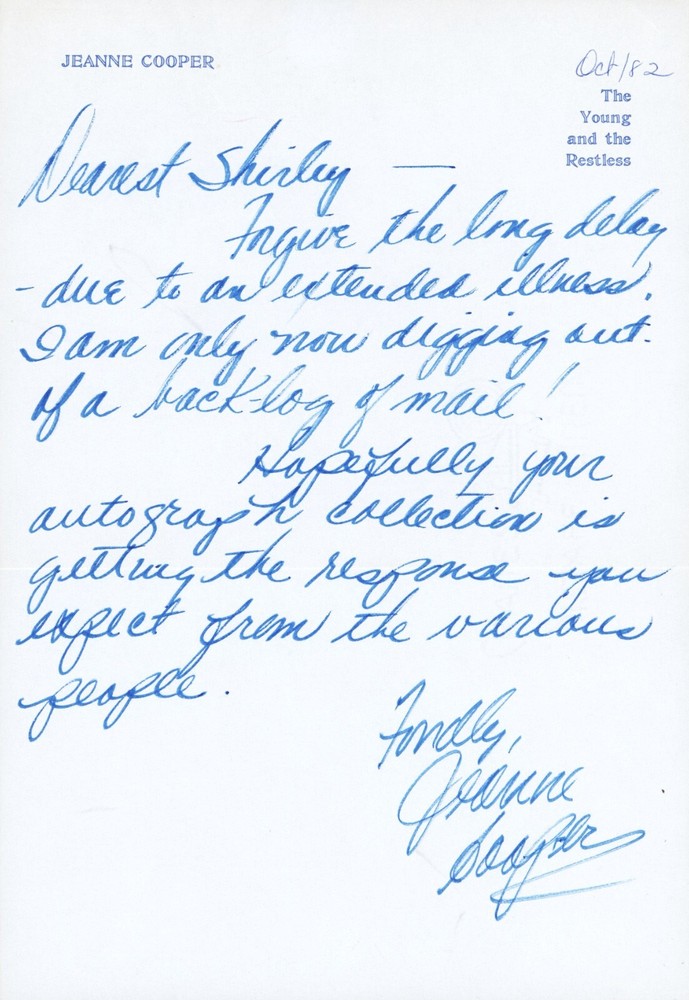 JEANNE COOPER
Oct/82
The
Young
and the
Restless
Dearest Shirley —
Forgive the long delay
- due to an extended illness.
I am only now digging out.
of a back-log of mail!
Hopefully your
autograph collection is
getting the response you
expect from the various
people.
Fondly,
Jeanne
Cooper